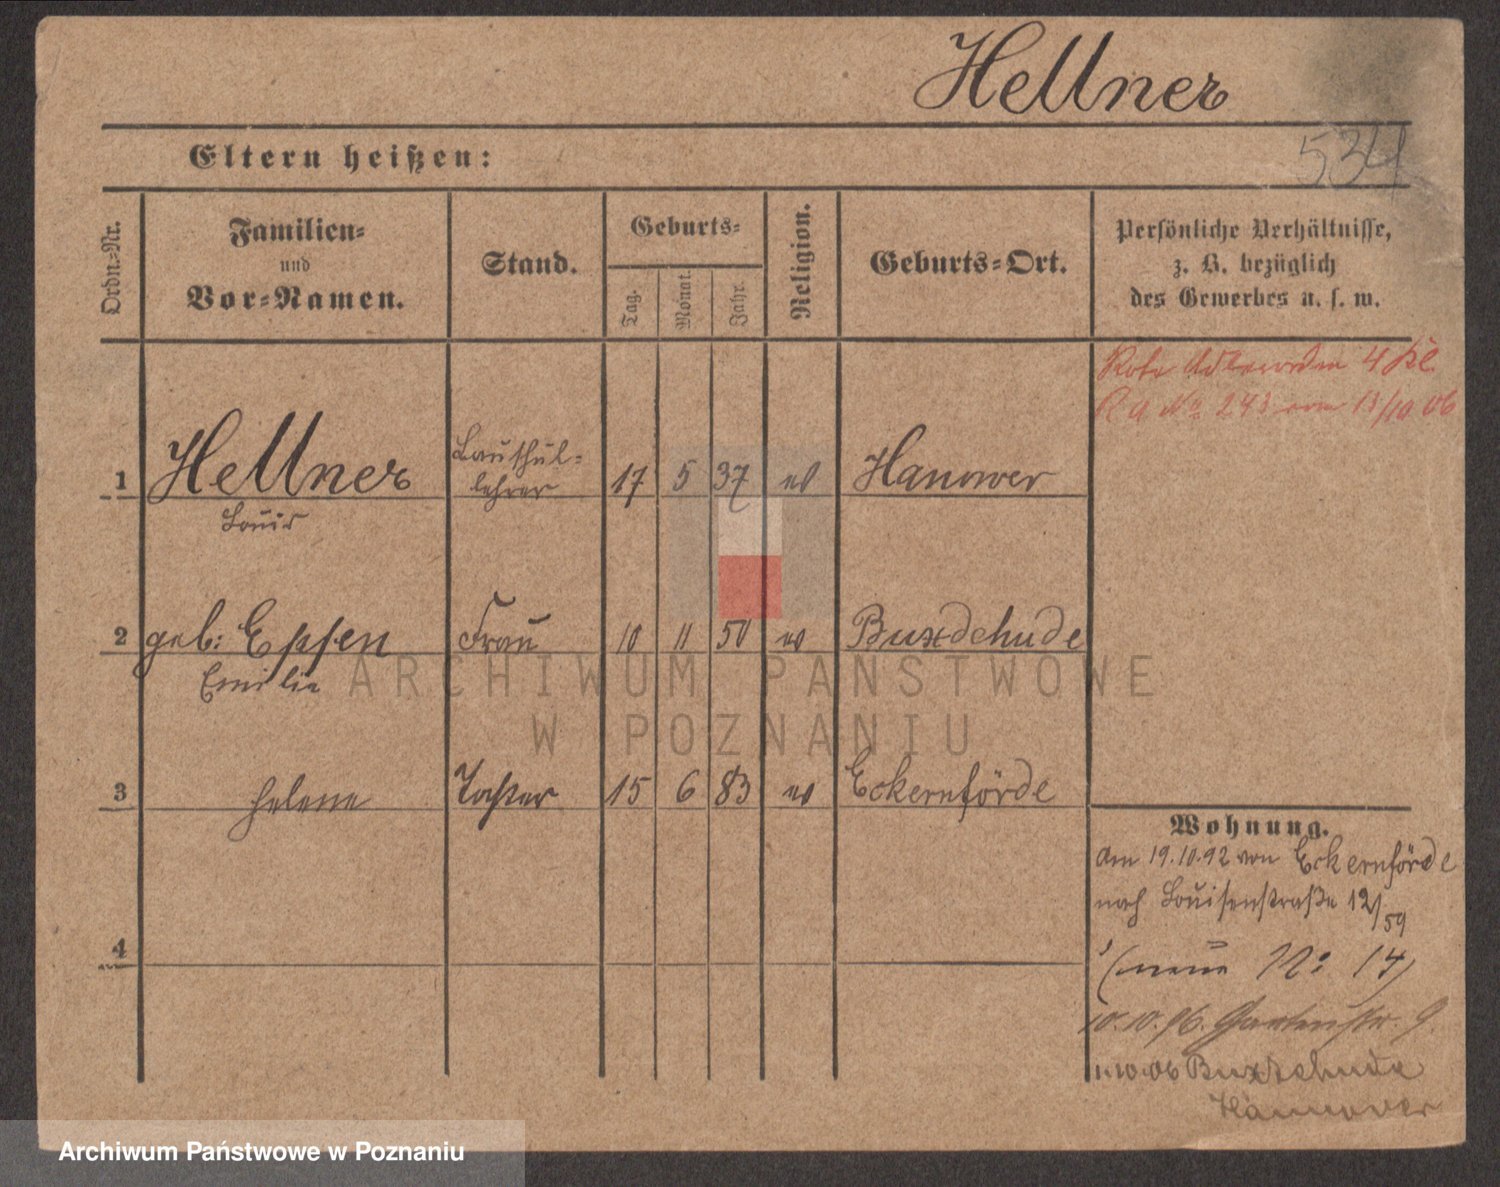 Hellner
534
Eltern heißen:
Ordn.-Nr.
Familien-
und
Vor-Namen.
Stand.
Geburts-
Tag.
Monat.
Jahr.
Religion.
Geburts-Ort.
Persönliche Verhältnisse,
z. B. bezüglich
des Gewerbes u. s. w.
Rote Adlerorden 4 Kl.
R A No 243 vom 13/10 06
1 Hellner 17 5 37 ev Hanover
lehrer
Louis
2 geb: Eppen Frau 10 11 50 ev Buxdehude
Emilie
3 Helene Tochter 15 6 83 ev Eckernförde
4
Wohnung.
Am 19.10.92 von Eckernförde
nach Louisenstraße 12/59
(neue No 17)
10.10.96. Gartenstr. 9.
1.10.06 Buxtehude
Hannover
ARCHIWUM PAŃSTWOWE
W POZNANIU
Archiwum Państwowe w Poznaniu